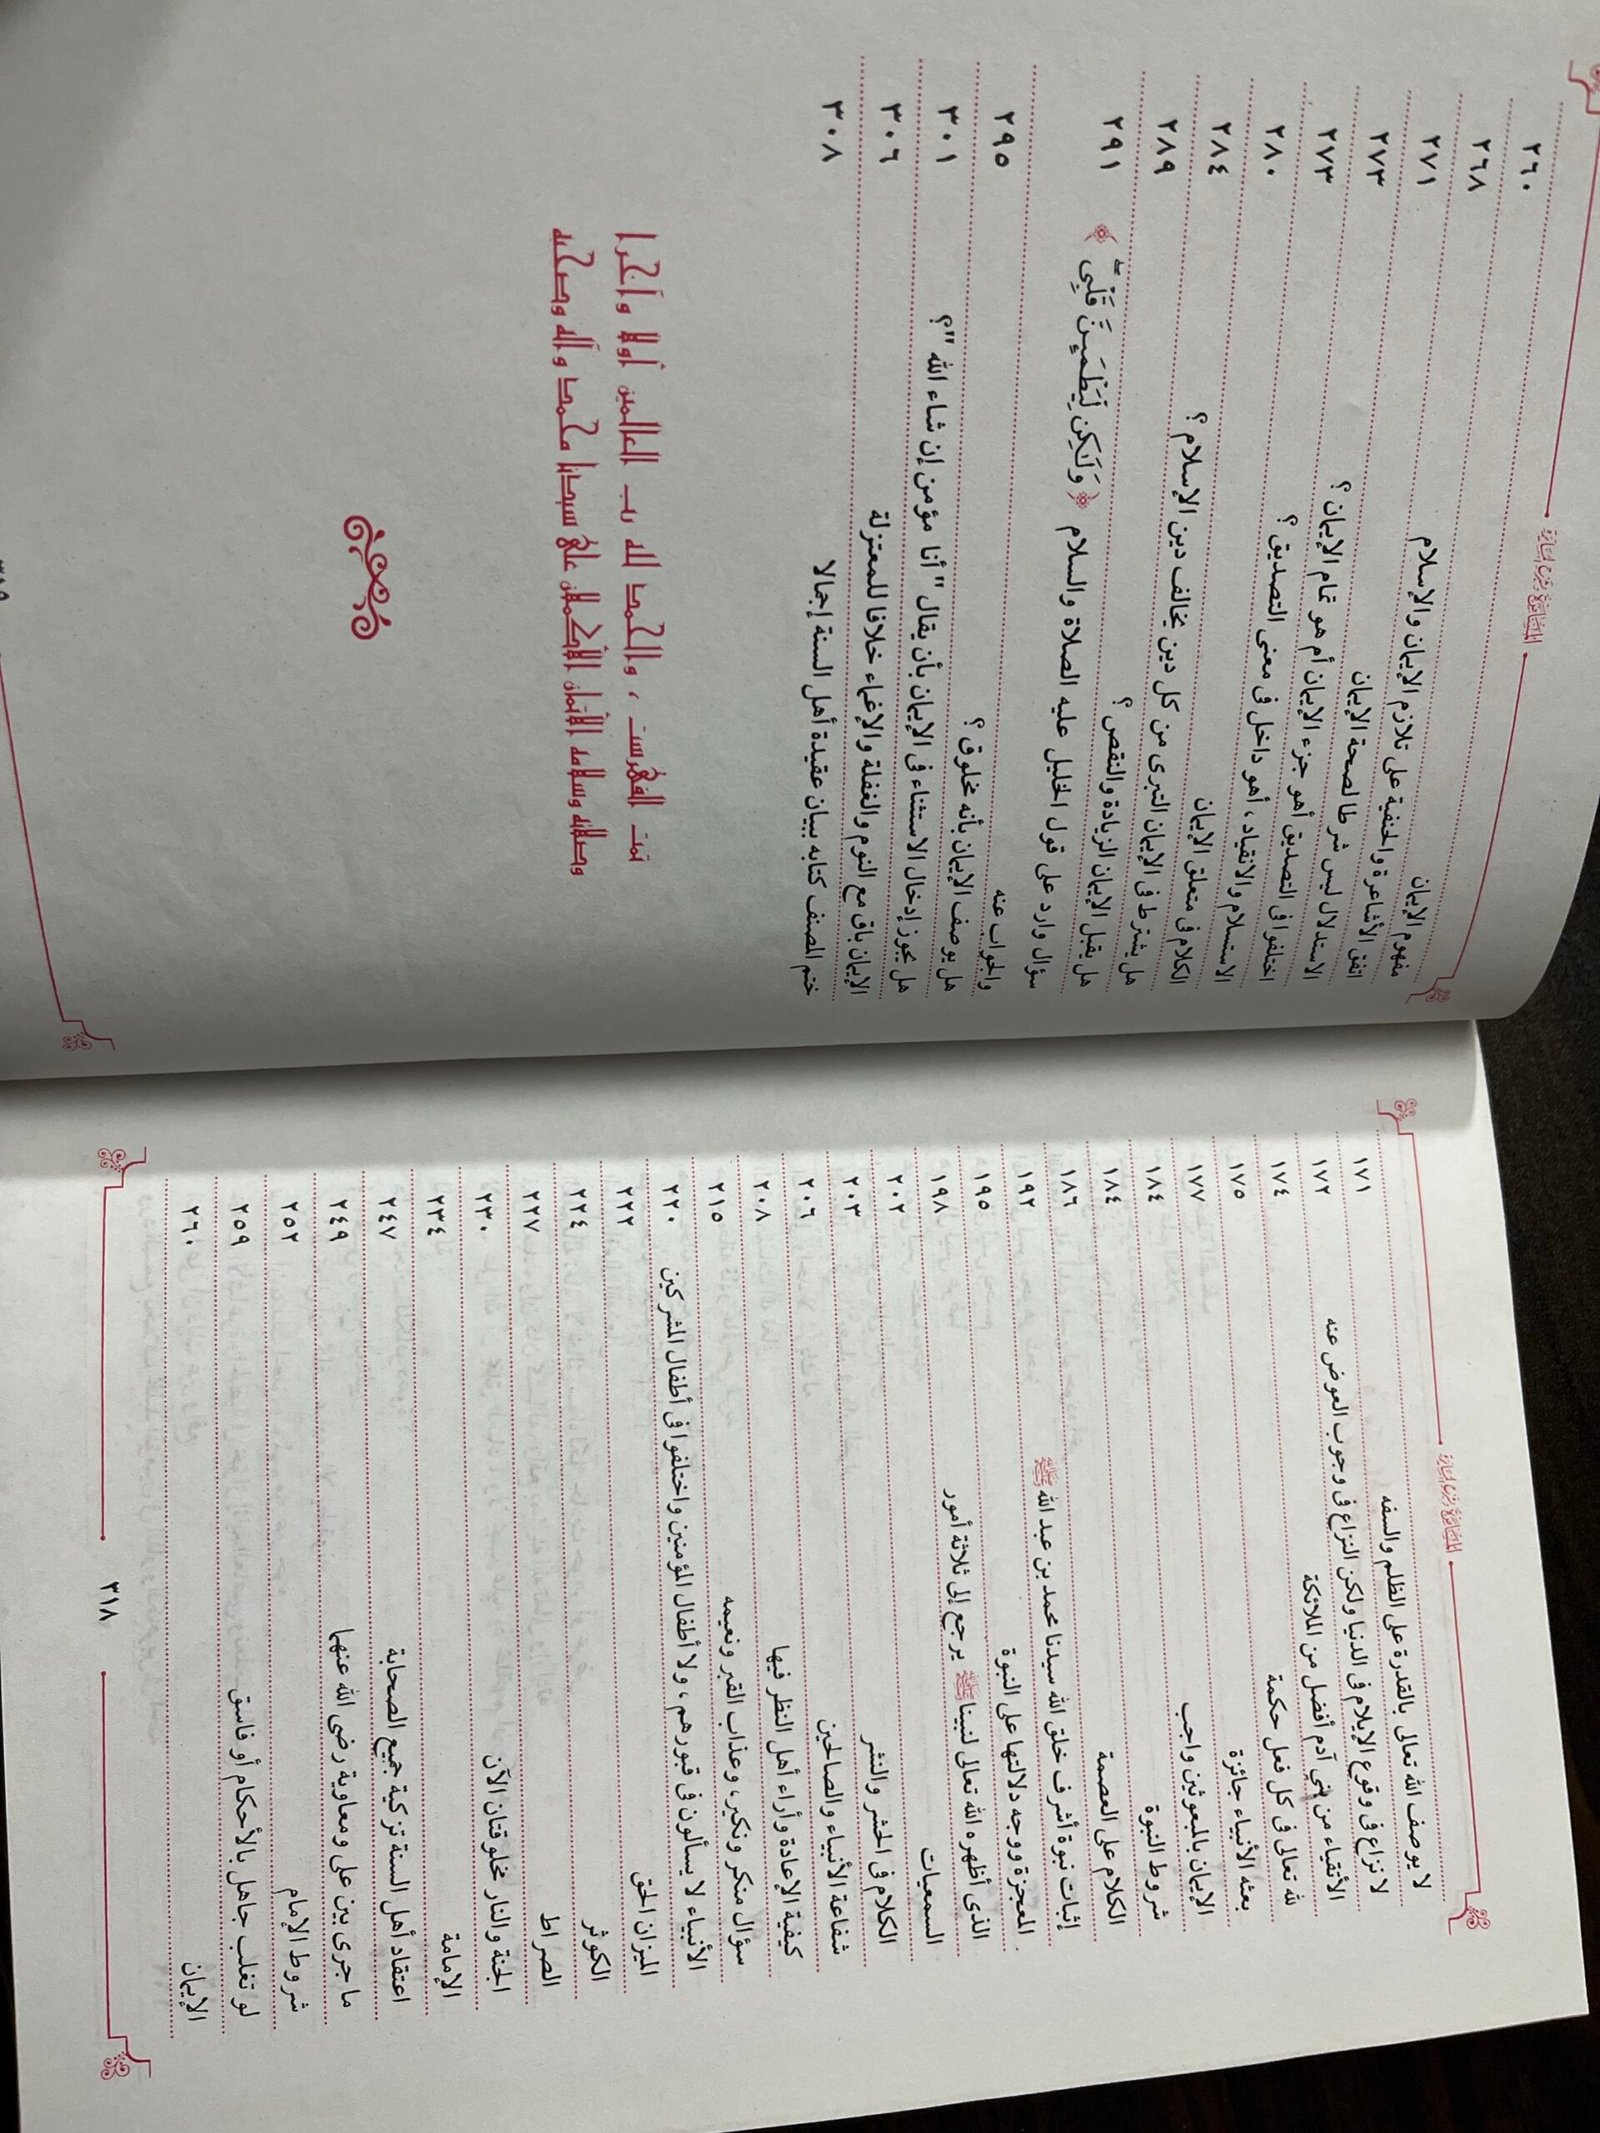 لا يوصف الله تعالى بالقدرة على الظلم والسفه ١٧١
لا نزاع فى وقوع الإيلام فى الدنيا ولكن النزاع فى وجوب العوض عنه ١٧٢
الأتقياء من بنى آدم أفضل من الملائكة ١٧٤
لله تعالى فى كل فعل حكمة ١٧٥
بعثه الأنبياء جائزة ١٧٧
الإيمان بالمبعوثين واجب ١٨٤
شروط النبوة ١٨٤
الكلام على العصمة ١٨٦
إثبات نبوة أشرف خلق الله سيدنا محمد بن عبد الله ﷺ ١٩٢
المعجزة ووجه دلالتها على النبوة ١٩٥
الذى أظهره الله تعالى لنبينا ﷺ يرجع إلى ثلاثة أمور ١٩٨
السمعيات ٢٠٢
الكلام فى الحشر والنشر ٢٠٣
شفاعة الأنبياء والصالحين ٢٠٦
كيفية الإعادة وأراء أهل النظر فيها ٢٠٨
سؤال منكر ونكير، وعذاب القبر ونعيمه ٢١٥
الأنبياء لا يسألون فى قبورهم، ولا أطفال المؤمنين واختلفوا فى أطفال المشركين ٢٢٠
الميزان الحق ٢٢٢
الكوثر ٢٢٤
الصراط ٢٢٧
الجنة والنار مخلوقتان الآن ٢٣٠
الإمامة ٢٣٤
اعتقاد أهل السنة تزكية جميع الصحابة ٢٤٧
ما جرى بين على ومعاوية رضى الله عنهما ٢٤٩
شروط الإمام ٢٥٢
لو تغلب جاهل بالأحكام أو فاسق ٢٥٩
الإيمان ٢٦٠
٣١٨
٢٦٠
مفهوم الإيمان ٢٦٨
اتفق الأشاعرة والحنفية على تلازم الإيمان والإسلام ٢٧١
الاستدلال ليس شرطا لصحة الإيمان ٢٧٣
اختلفوا فى التصديق أهو جزء الإيمان أم هو تمام الإيمان ؟ ٢٧٣
الاستسلام والانقياد، أهو داخل فى معنى التصديق ؟ ٢٨٠
الكلام فى متعلق الإيمان ٢٨٤
هل يشترط فى الإيمان التبرى من كل دين يخالف دين الإسلام ؟ ٢٨٩
هل يقبل الإيمان الزيادة والنقص ؟ ٢٩١
سؤال وارد على قول الخليل عليه الصلاة والسلام ﴿وَلَٰكِن لِّيَطْمَئِنَّ قَلْبِى﴾
والجواب عنه ٢٩٥
هل يوصف الإيمان بأنه مخلوق ؟ ٣٠١
هل يجوز إدخال الاستثناء فى الإيمان بأن يقال "أنا مؤمن إن شاء الله"؟ ٣٠٦
الإيمان باق مع النوم والغفلة والإغماء خلافا للمعتزلة ٣٠٨
ختم المصنف كتابه ببيان عقيدة أهل السنة إجمالا
تمت الفهرست، والحمد لله رب العالمين أولا وآخرا
وصلاته وسلامه الأتمان الأكملان على سيدنا محمد وآله وصحبه